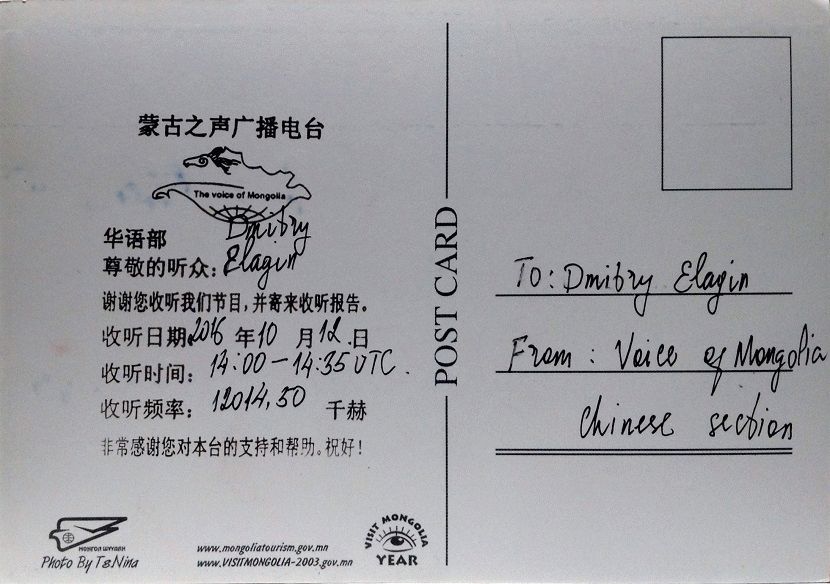 蒙古之声广播电台
The voice of Mongolia
华语部
尊敬的听众: Dmitry Elagin
谢谢您收听我们节目,并寄来收听报告。
收听日期: 2016 年 10 月 12 日
收听时间: 14:00 - 14:35 UTC.
收听频率: 12014,50 千赫
非常感谢您对本台的支持和帮助。祝好!
МОНГОЛ ШУУДАН
Photo By Ts.Nina
www.mongoliatourism.gov.mn
www.VISITMONGOLIA-2003.gov.mn
VISIT MONGOLIA
YEAR
POST CARD
To: Dmitry Elagin
From: Voice of Mongolia
Chinese section